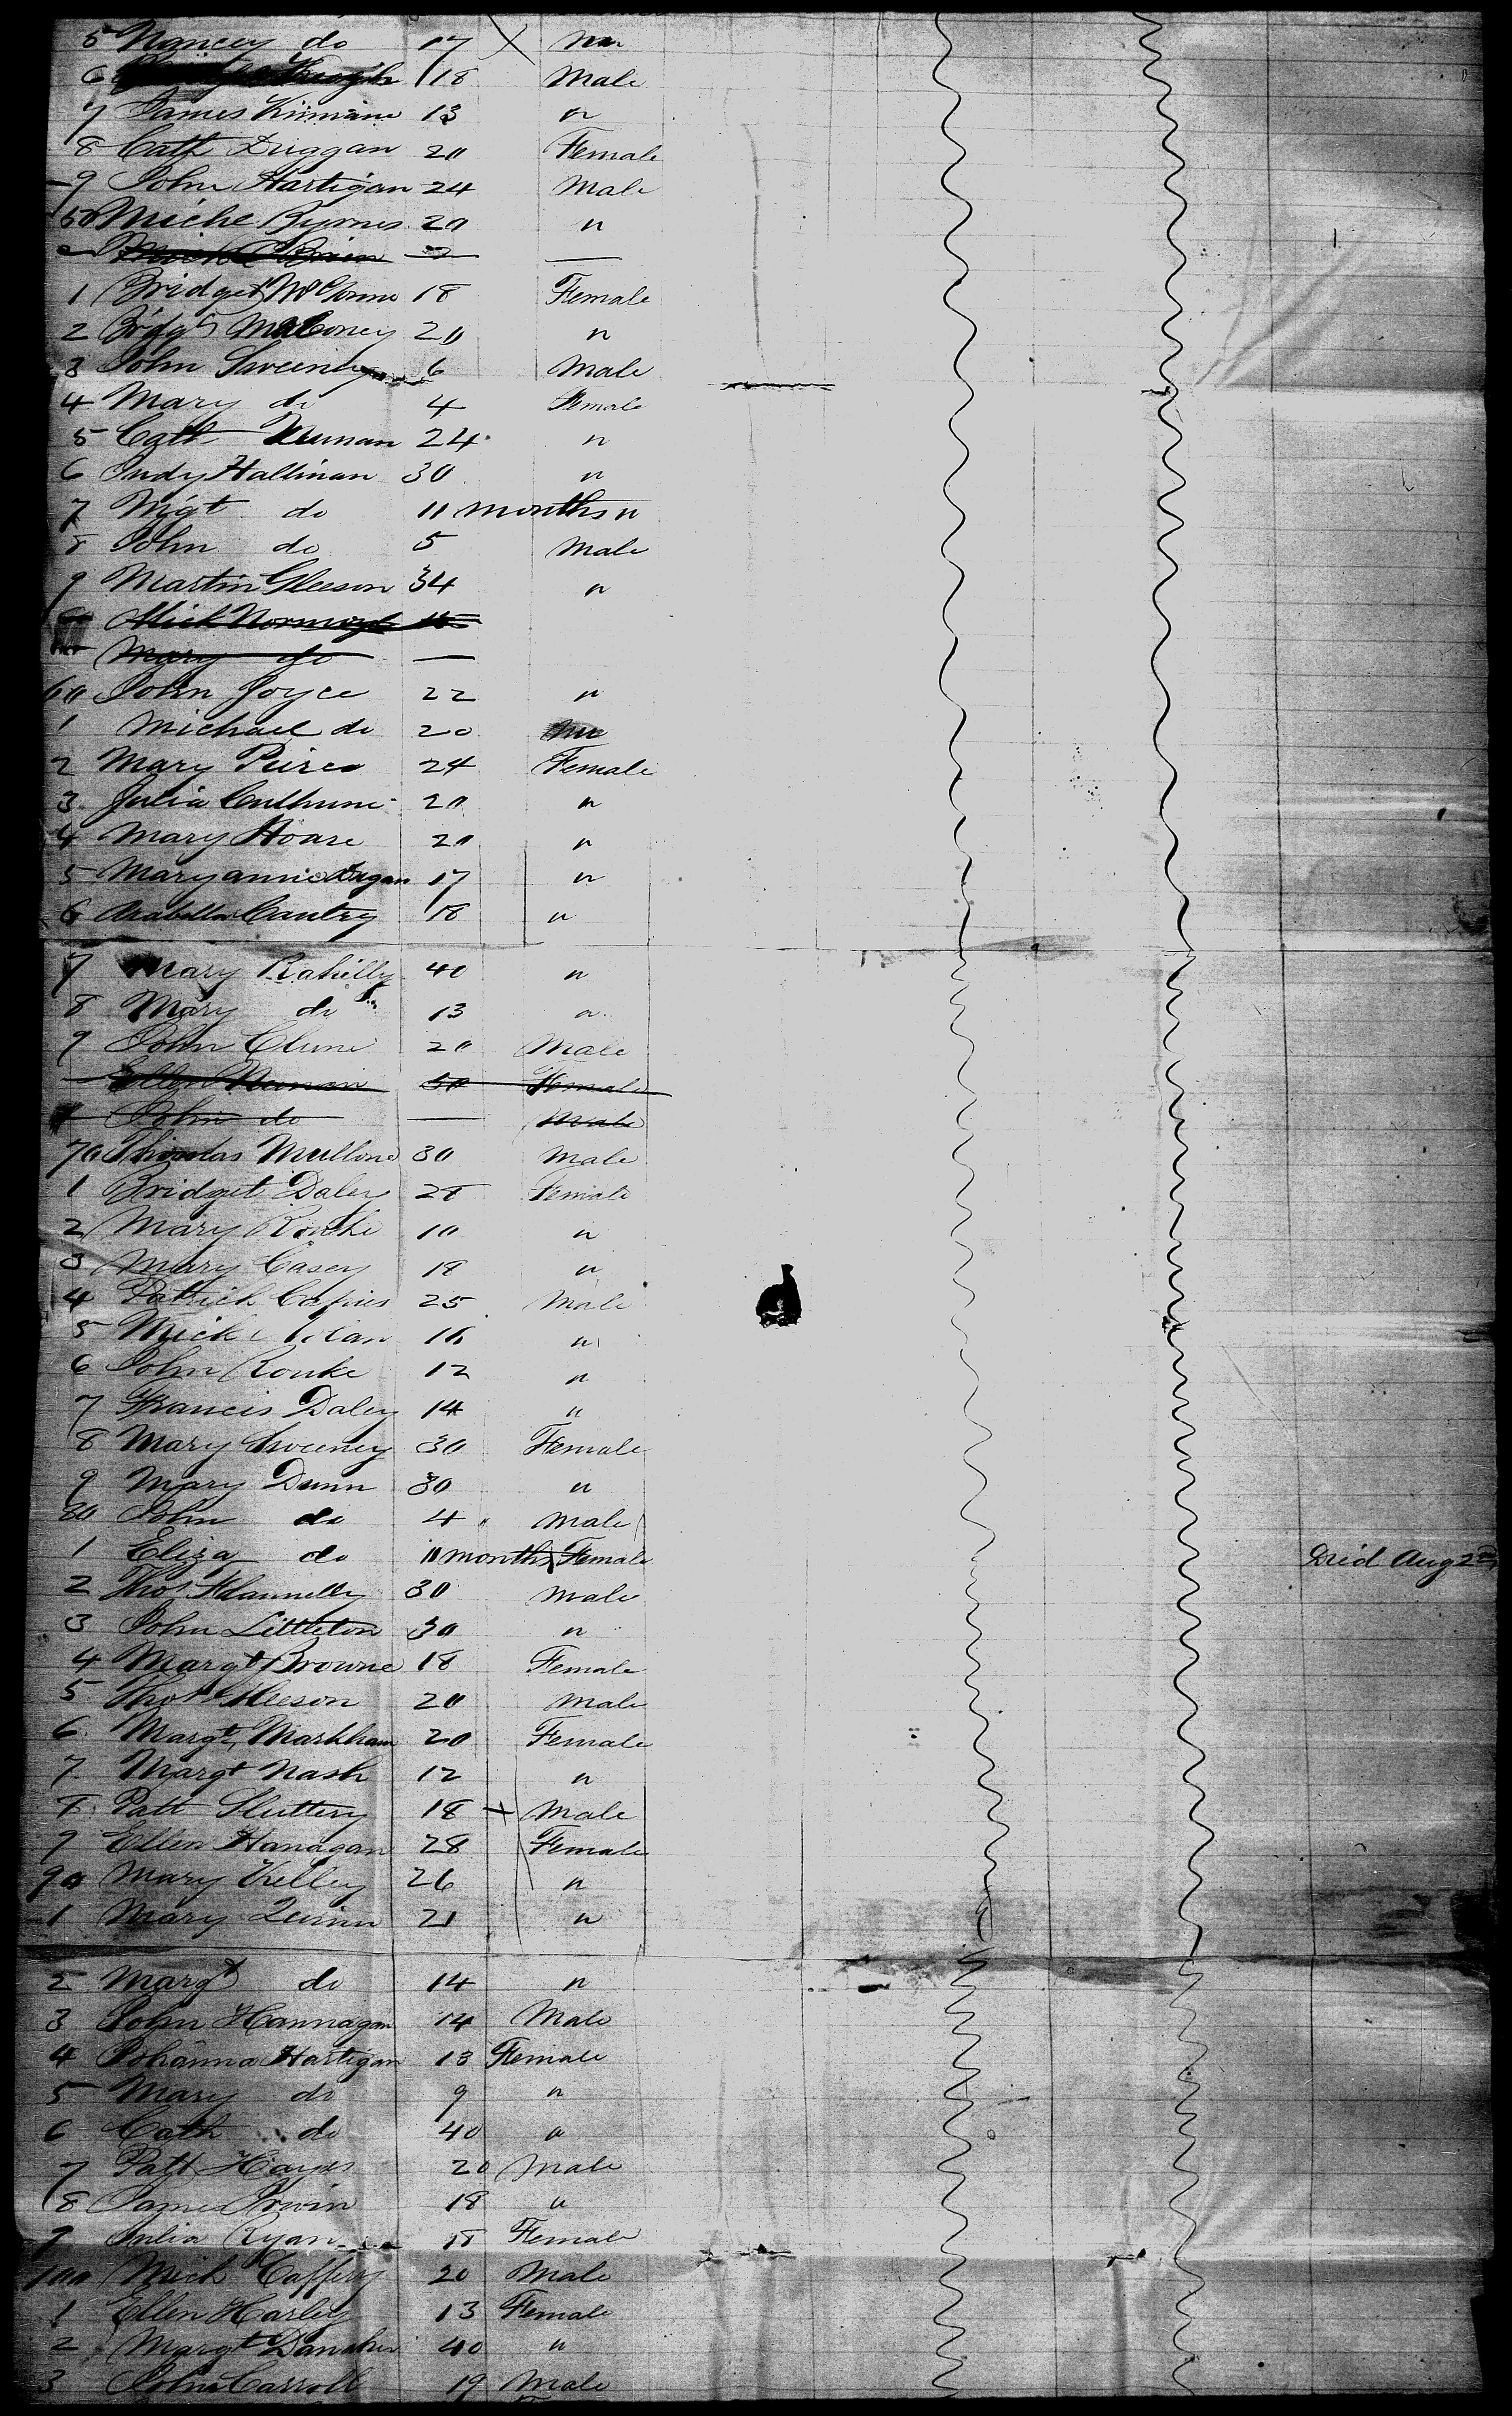 5 Nancy do 17
6 18 Male
7 James Kinnane 13 "
8 Cath Duggan 20 Female
9 John Hartigan 24 Male
50 Miche Byrnes 20 "
1 Bridget 18 Female
2 Bridgt Maloney 20 "
3 John Sweeney 6 Male
4 Mary do 4 Female
5 Cath 24 "
6 Judy Hallinan 30 "
7 Mgt do 11 months "
8 John do 5 Male
9 Martin Gleeson 34 "
Mich
Mary do
60 John Joyce 22 "
1 Michael do 20
2 Mary 24 Female
3 Julia 20 "
4 Mary Hoare 20 "
5 Maryanne 17 "
6 Arabella 18 "
7 Mary Rahilly 40 "
8 Mary do 13 "
9 John Clune 20 Male
Ellen Female
John do Male
70 Thomas Mullone 30 Male
1 Bridget Daley 28 Female
2 Mary 10 "
3 Mary Casey 18 "
4 Patrick 25 Male
5 Mick 16 "
6 John Rouke 12 "
7 Francis Daley 14 "
8 Mary Sweeney 30 Female
9 Mary Dunn 30 "
80 John do 4 Male
1 Eliza do 11 months Female Died Aug 2nd
2 Thos Flannelly 30 Male
3 John Littleton 30 "
4 Margt Browne 18 Female
5 Thos Gleeson 20 Male
6 Margt Markham 20 Female
7 Margt Nash 12 "
8 Patt Sluttery 18 + Male
9 Ellen Hanagan 28 Female
90 Mary Kelley 26 "
1 Mary Quinn 21 "
2 Margt do 14 "
3 John Hannagan 14 Male
4 Johanna Hartigan 13 Female
5 Mary do 9 "
6 Cath do 40 "
7 Patt Hayes 20 Male
8 James Irwin 18 "
9 Julia Ryan 18 Female
100 Mich Caffery 20 Male
1 Ellen Harley 13 Female
2 Margt Danaher 40 "
3 John Carroll 19 Male